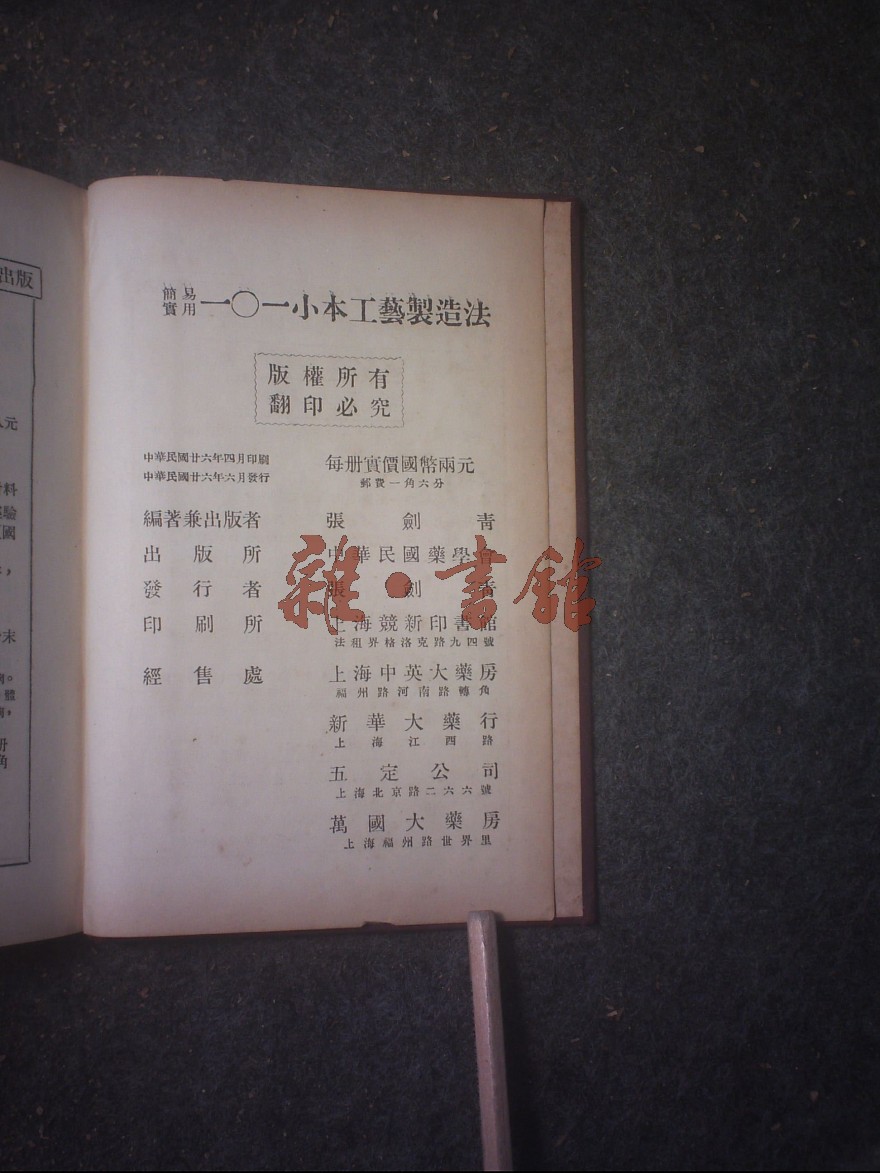 出版
元
料
驗
國
，
末
。
體
，
冊
角
簡易
實用
一〇一小本工藝製造法
版權所有
翻印必究
中華民國廿六年四月印刷
中華民國廿六年六月發行
每册實價國幣兩元
郵費一角六分
編著兼出版者 張劍青
出版所 中華民國藥學會
發行者 張劍青
印刷所 上海競新印書館
法租界格洛克路九四號
經售處 上海中英大藥房
福州路河南路轉角
新華大藥行
上海江西路
五定公司
上海北京路二六六號
萬國大藥房
上海福州路世界里
雜·書館